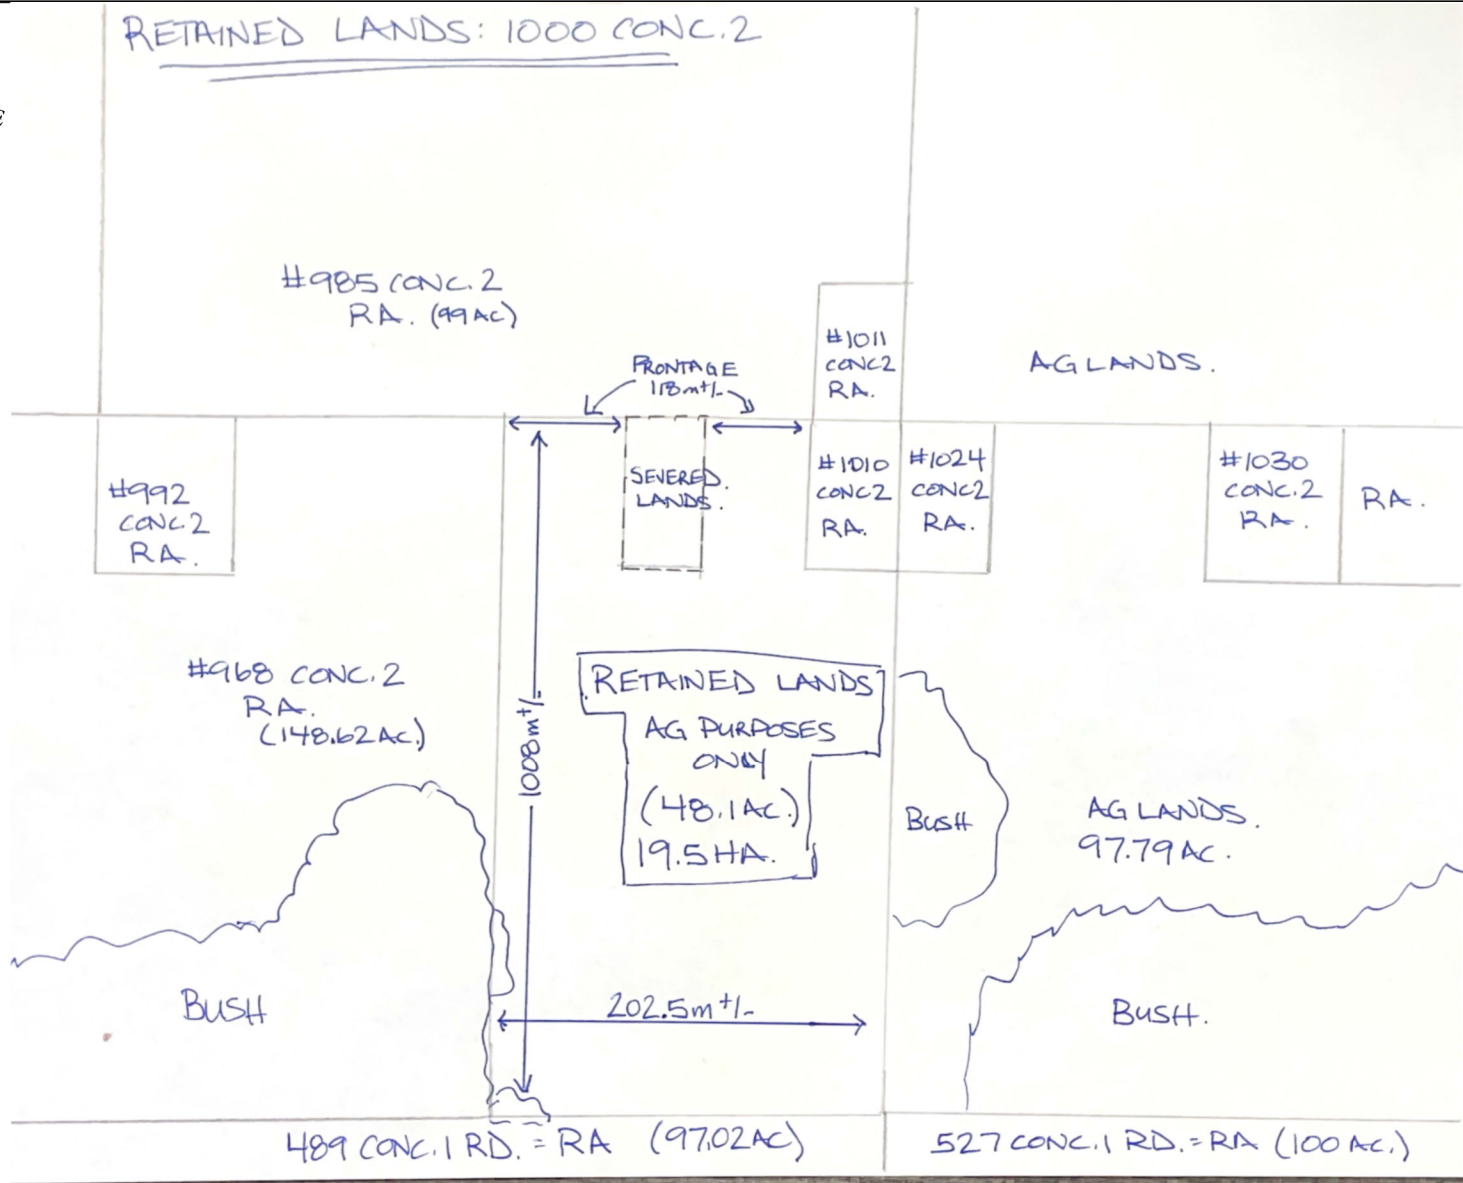 RETAINED LANDS: 1000 CONC.2
#985 CONC. 2
RA. (99 AC)
FRONTAGE
118m+/-
#1011
CONC2
RA.
AG LANDS.
#992
CONC.2
RA.
SEVERED.
LANDS.
#1010
CONC2
RA.
#1024
CONC2
RA.
#1030
CONC.2
RA.
RA.
#968 CONC.2
RA.
(148.62 AC.)
1008m+/-
RETAINED LANDS
AG PURPOSES
ONLY
(48.1 AC.)
19.5 HA.
BUSH
AG LANDS.
97.79 AC.
BUSH
202.5m +/-
BUSH.
489 CONC. 1 RD. = RA (97.02 AC)
527 CONC. 1 RD. = RA (100 AC.)